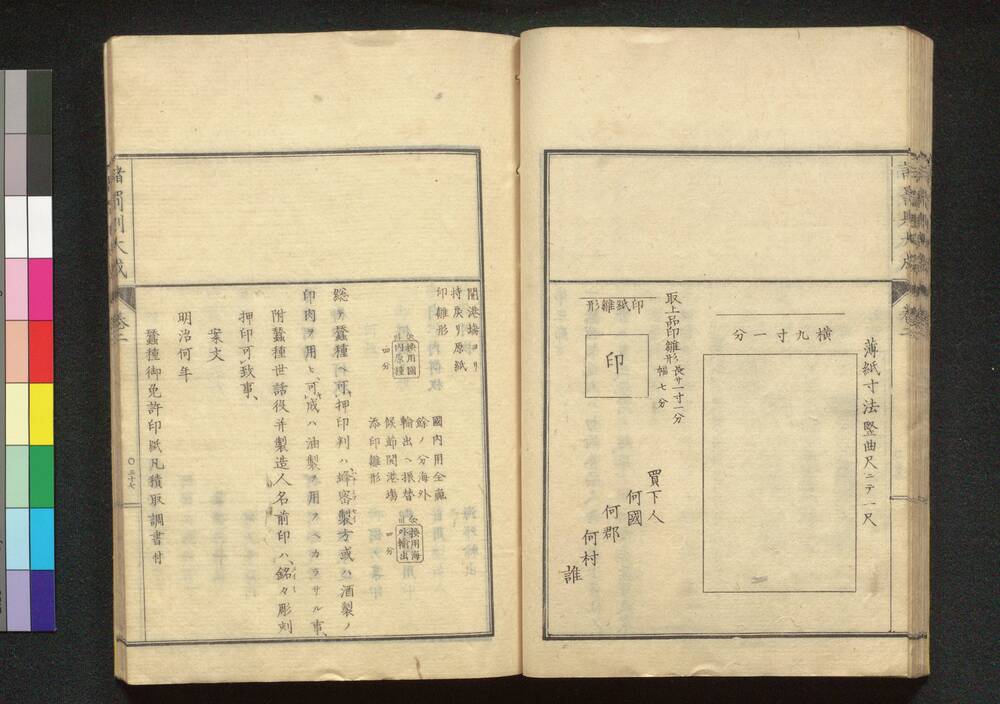 薄紙寸法竪曲尺ニテ一尺
横九寸一分
取上品印雛形長サ一寸一分
幅七分
印紙雛形
印
買下人
何國
何郡
何村
誰
開港場ヨリ
持戻リ原紙
印雛形
換用國
内原種
四分
國内用全滿
餘ノ分海外
輸出ヘ振替
候節開港場
添印雛形
換用海
外輸出
四分
總テ蚕種ヘ可押印判ハ蜂蜜製方或ハ酒製ノ
印肉ヲ用ヒ可成ハ油製ヲ用フヘカラサル事
附蚕種世話役并製造人名前印ハ銘々彫刻
押印可致事
案文
明治何年
蚕種御免許印紙凡積取調書付
卷二
〇三十七